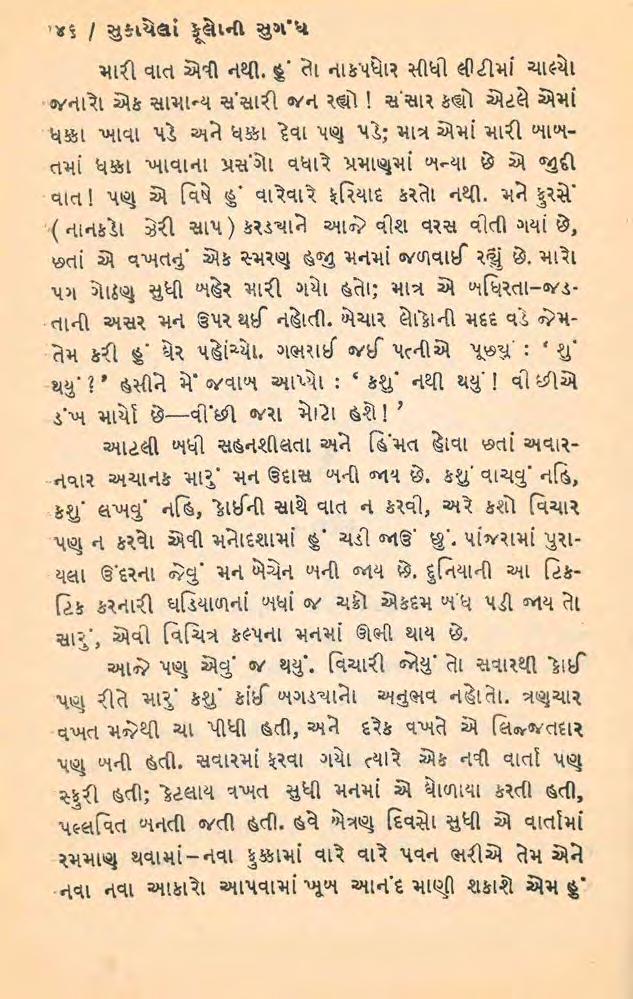 ૪૬ / સુકાયેલાં ફૂલોની સુગંધ
મારી વાત એવી નથી. હું તો નાકપધોર સીધી લીટીમાં ચાલ્યો
જનારો એક સામાન્ય સંસારી જન રહ્યો ! સંસાર કહ્યો એટલે એમાં
ધક્કા ખાવા પડે અને ધક્કા દેવા પણ પડે; માત્ર એમાં મારી બાબ-
તમાં ધક્કા ખાવાના પ્રસંગો વધારે પ્રમાણમાં બન્યા છે એ જુદી
વાત! પણ એ વિષે હું વારેવારે ફરિયાદ કરતો નથી. મને ફુરસેં
( નાનકડો ઝેરી સાપ ) કરડ્યાને આજે વીશ વરસ વીતી ગયાં છે,
છતાં એ વખતનું એક સ્મરણ હજુ મનમાં જળવાઈ રહ્યું છે. મારો
પગ ગોઠણ સુધી બહેર મારી ગયો હતો; માત્ર એ બધિરતા–જડ-
તાની અસર મન ઉપર થઈ નહોતી. બેચાર લોકોની મદદ વડે જેમ-
તેમ કરી હું ઘેર પહોંચ્યો. ગભરાઈ જઈ પત્નીએ પૂછ્યું : ‘ શું
થયું ? ’ હસીને મેં જવાબ આપ્યો : ‘ કશું નથી થયું ! વીંછીએ
ડંખ માર્યો છે—વીંછી જરા મોટો હશે ! ’
આટલી બધી સહનશીલતા અને હિંમત હોવા છતાં અવાર-
નવાર અચાનક મારું મન ઉદાસ બની જાય છે. કશું વાચવું નહિ,
કશું લખવું નહિ, કોઈની સાથે વાત ન કરવી, અરે કશો વિચાર
પણ ન કરવો એવી મનોદશામાં હું ચડી જાઉં છું. પાંજરામાં પુરા-
યલા ઉંદરના જેવું મન બેચેન બની જાય છે. દુનિયાની આ ટિક-
ટિક કરનારી ઘડિયાળનાં બધાં જ ચક્રો એકદમ બંધ પડી જાય તો
સારું, એવી વિચિત્ર કલ્પના મનમાં ઊભી થાય છે.
આજે પણ એવું જ થયું. વિચારી જોયું તો સવારથી કોઈ
પણ રીતે મારું કશું કાંઈ બગડ્યાનો અનુભવ નહોતો. ત્રણચાર
વખત મજેથી ચા પીધી હતી, અને દરેક વખતે એ લિજ્જતદાર
પણ બની હતી. સવારમાં ફરવા ગયો ત્યારે એક નવી વાર્તા પણ
સ્ફુરી હતી; કેટલાય વખત સુધી મનમાં એ ઘોળાયા કરતી હતી,
પલ્લવિત બનતી જતી હતી. હવે બેત્રણ દિવસો સુધી એ વાર્તામાં
રમમાણ થવામાં–નવા ફુક્કામાં વારે વારે પવન ભરીએ તેમ એને
નવા નવા આકારો આપવામાં ખૂબ આનંદ માણી શકાશે એમ હું